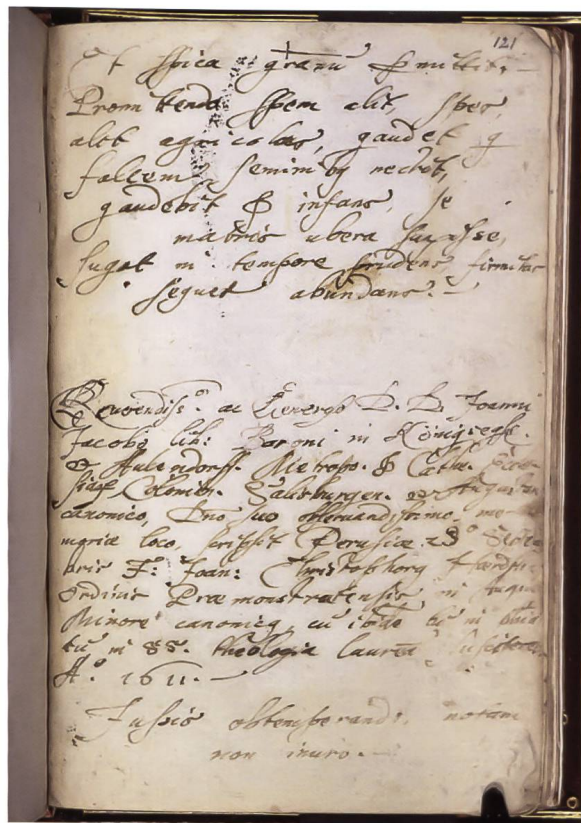 121
Et spica granu p̱mittit.
Promittendo spem alit, spes,
alet agricolas, gaudet q
falcem seminiby nectit,
gaudebit & infans, se
matris ubera suxisse,
suget in tempore prudens, firmitas
sequet abundans.
Reverendiss.º ac Generoso D. D. Joanni
Jacobo lib: Baroni in Königsegk.
& Aulendorff. Metropo. & Cathe.
Colonien. Salisburgen. Augustan
canonico, Dno suo observandissimo, me-
moriæ loco, scripsit Perusiæ
bris F: Joan: Christophorg
Ordinis Præmonstratensis in Augia
Minore canonicg, cu
tu in SS. theologia laurea
Aº. 1611.
Jussis obtemperandi, notam
non inuro.